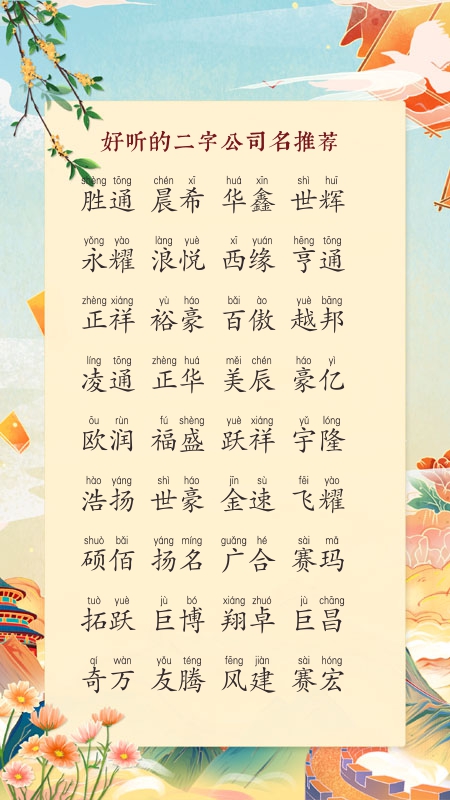 好听的二字公司名推荐
shèng tōng chén xī huá xīn shì huī
胜通 晨希 华鑫 世辉
yǒng yào làng yuè xī yuán hēng tōng
永耀 浪悦 西缘 亨通
zhèng xiáng yù háo bǎi ào yuè bāng
正祥 裕豪 百傲 越邦
líng tōng zhèng huá měi chén háo yì
凌通 正华 美辰 豪亿
ōu rùn fú shèng yuè xiáng yǔ lóng
欧润 福盛 跃祥 宇隆
hào yáng shì háo jīn sù fēi yào
浩扬 世豪 金速 飞耀
shuò bǎi yáng míng guǎng hé sài mǎ
硕佰 扬名 广合 赛玛
tuò yuè jù bó xiáng zhuó jù chāng
拓跃 巨博 翔卓 巨昌
qí wàn yǒu téng fēng jiàn sài hóng
奇万 友腾 风建 赛宏